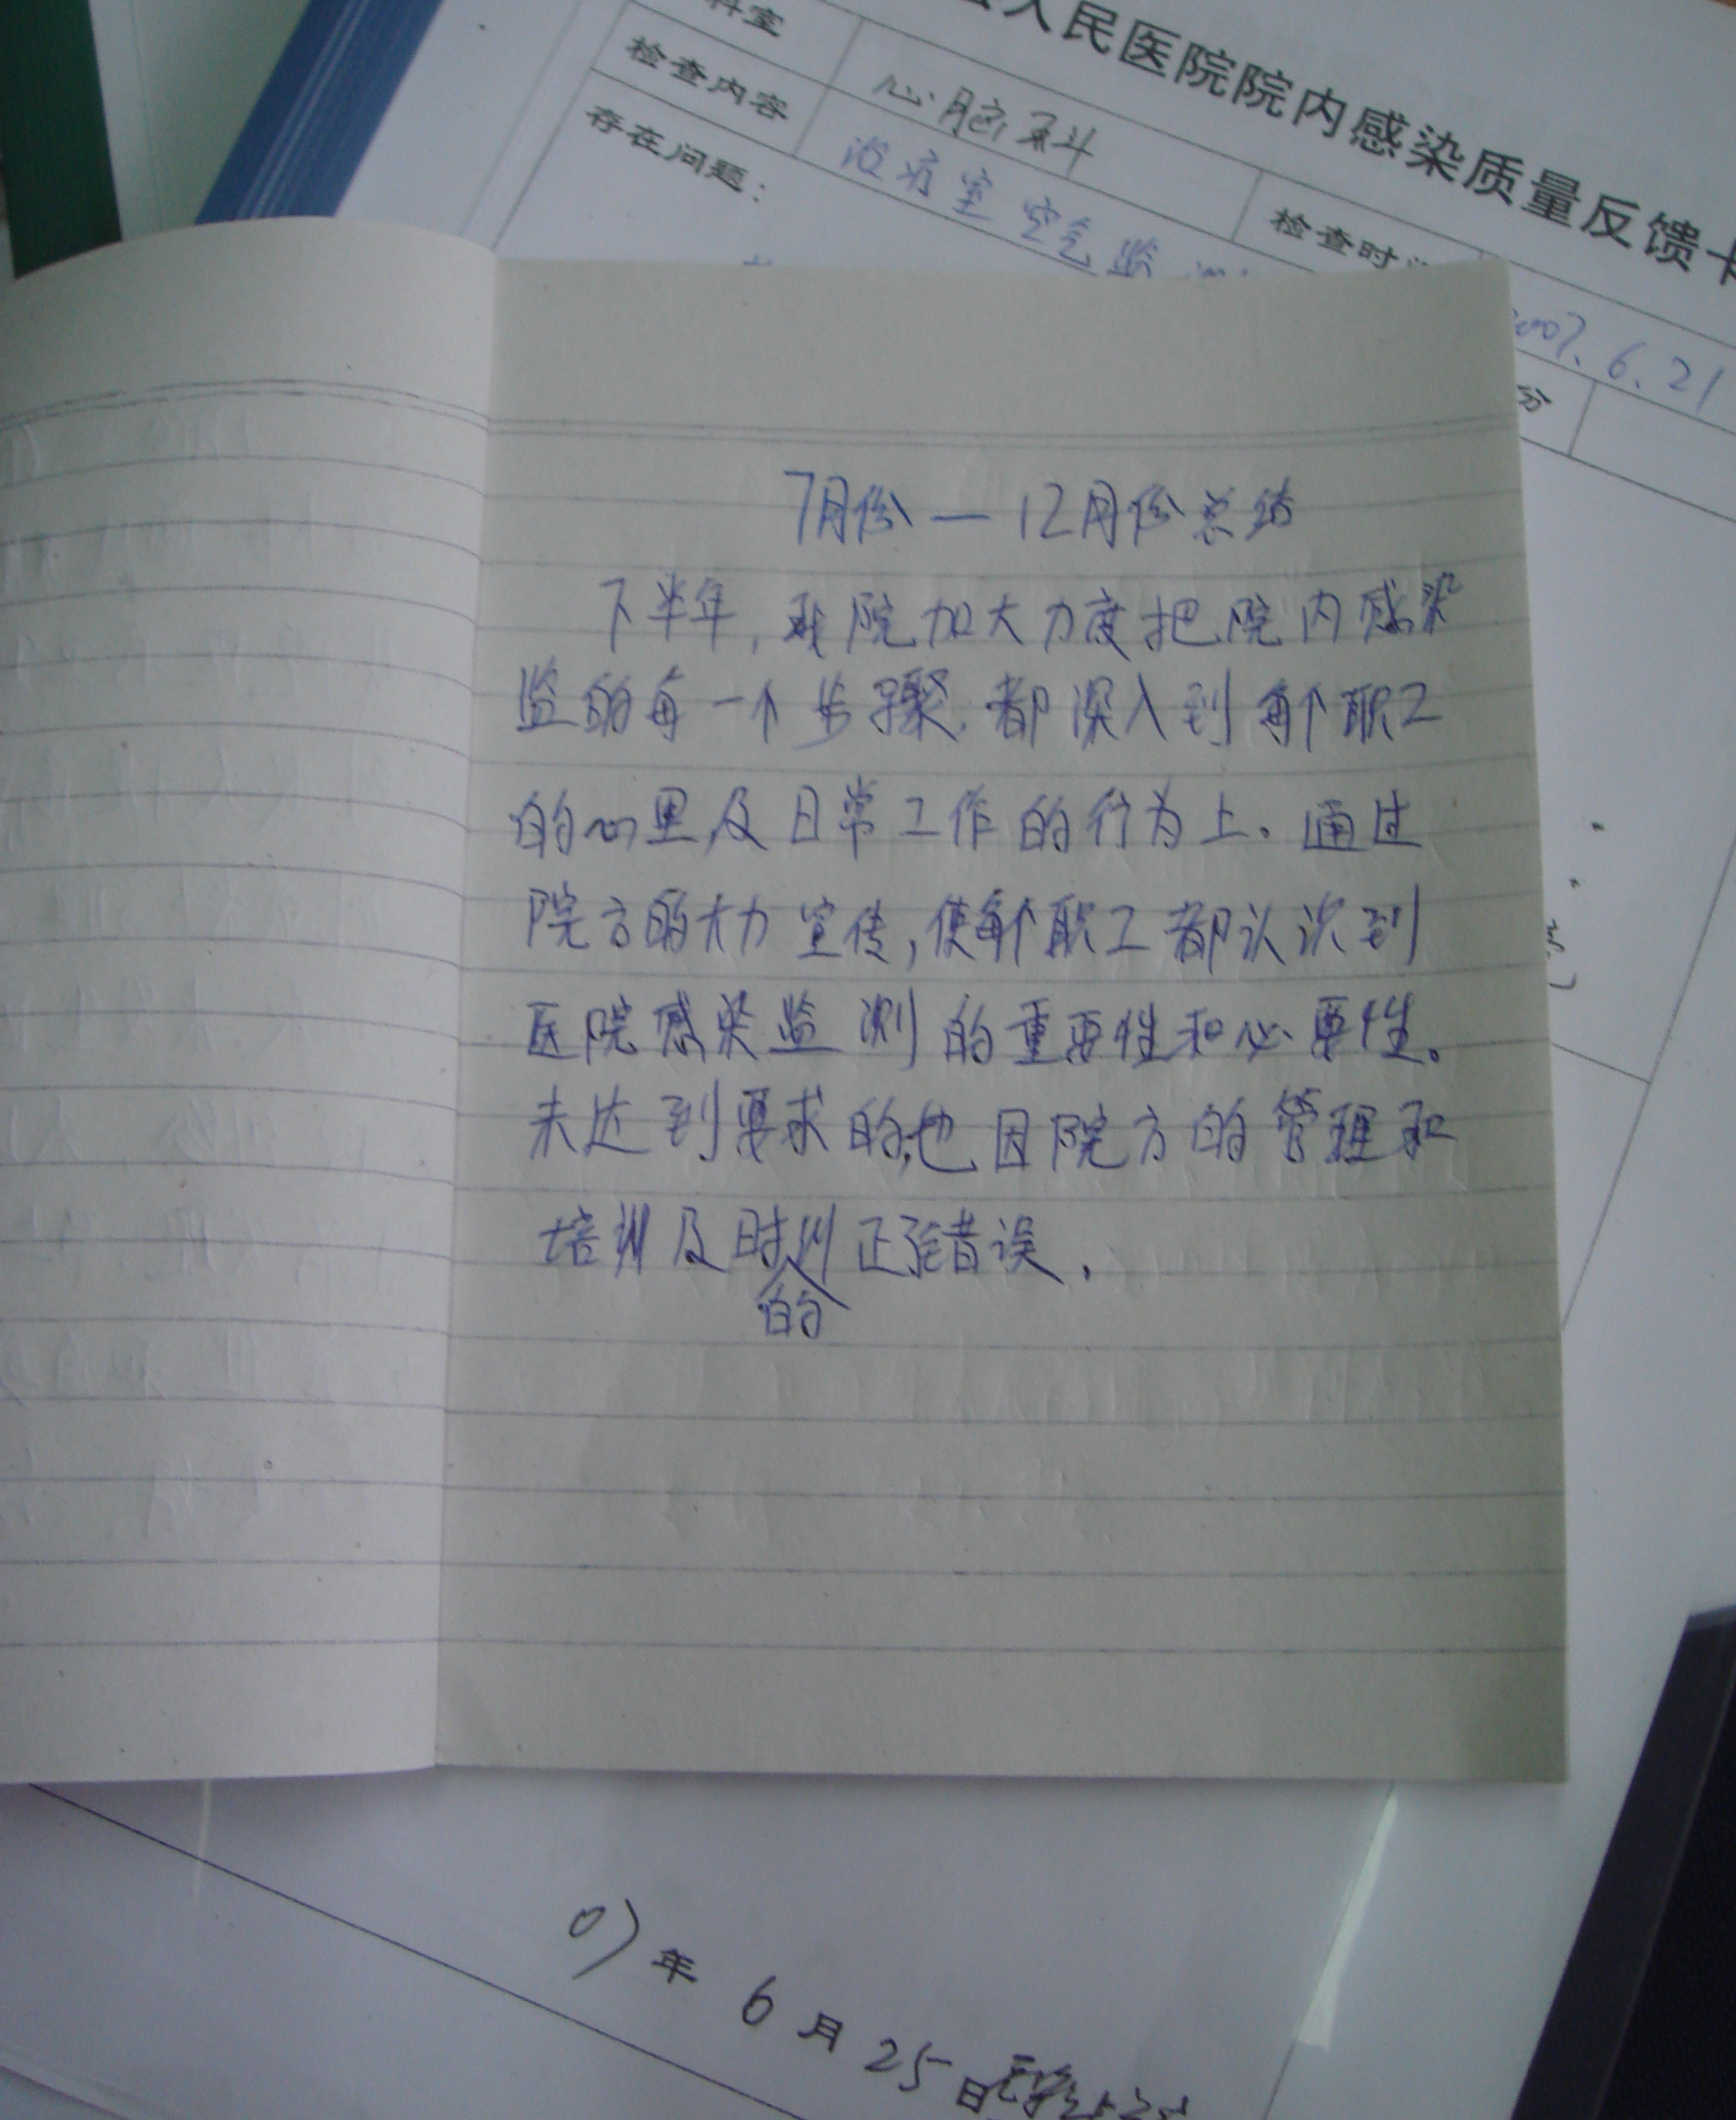 人民医院院内感染质量反馈卡
科室 心脑科 检查时
2007.6.21
检查内容 治疗室空气监测
分
存在问题：
7月份—12月份总结
下半年，我院加大力度把院内感染
监的每一个步骤，都深入到每个职工
的心里及日常工作的行为上。通过
院方的大力宣传，使每个职工都认识到
医院感染监测的重要性和必要性。
未达到要求的，也因院方的管理和
培训及时纠正错误．
的
07年6月25日